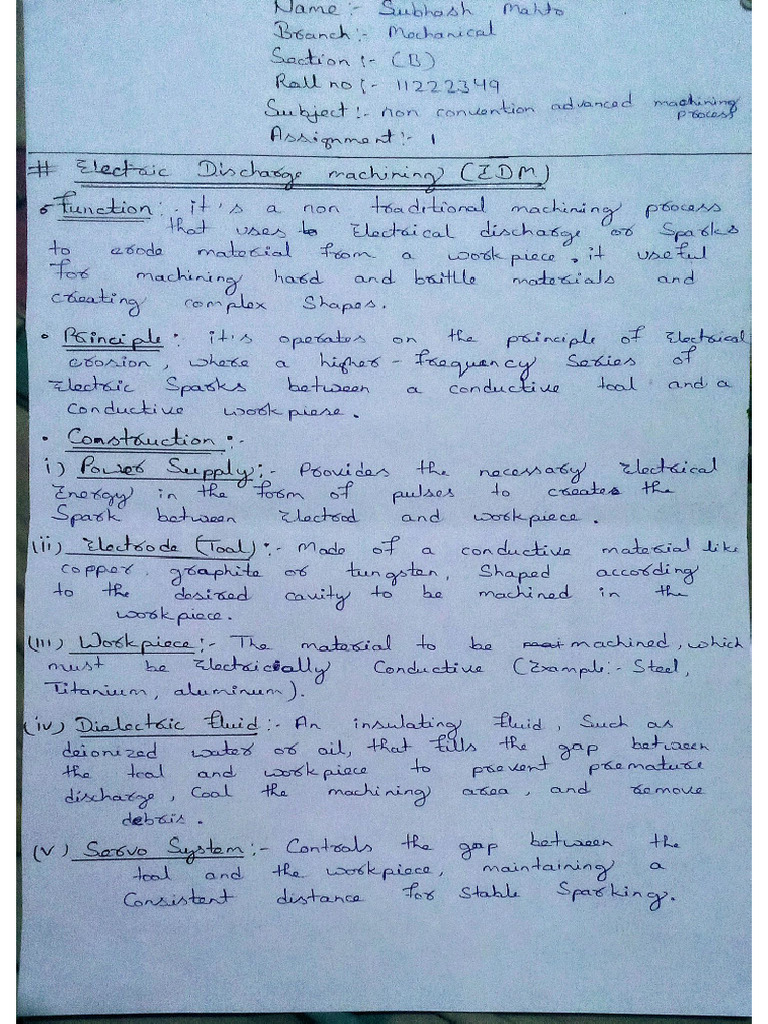 Name:- Subhash Mahto
Branch:- Mechanical
Section:- (B)
Roll no:- 11222349
Subject:- non convention advanced machining
process
Assignment:- 1
# Electric Discharge machining (EDM)
Function: it's a non traditional machining process
that uses to Electrical discharge or Sparks
to erode material from a workpiece. it useful
for machining hard and brittle materials and
creating complex Shapes.
• Principle: it's operates on the principle of Electrical
erosion, where a higher-frequency Series of
Electric Sparks between a conductive tool and a
conductive workpiese.
• Construction:-
i) Power Supply:- Provides the necessary Electrical
Energy in the form of pulses to creates the
Spark between Electrod and workpiece.
(ii) Electrode (Tool):- Made of a conductive material like
copper, graphite or tungsten, Shaped according
to the desired cavity to be machined in the
workpiece.
(iii) Workpiece:- The material to be machined, which
must be Electricially Conductive (Example:- Steel,
Titanium, aluminum).
(iv) Dielectric fluid:- An insulating fluid, Such as
deionized water or oil, that fills the gap between
the tool and workpiece to prevent premature
discharge, Cool the machining area, and remove
debris.
(v) Servo System:- Controls the gap between the
tool and the workpiece, maintaining a
Consistent distance for Stable Sparking.